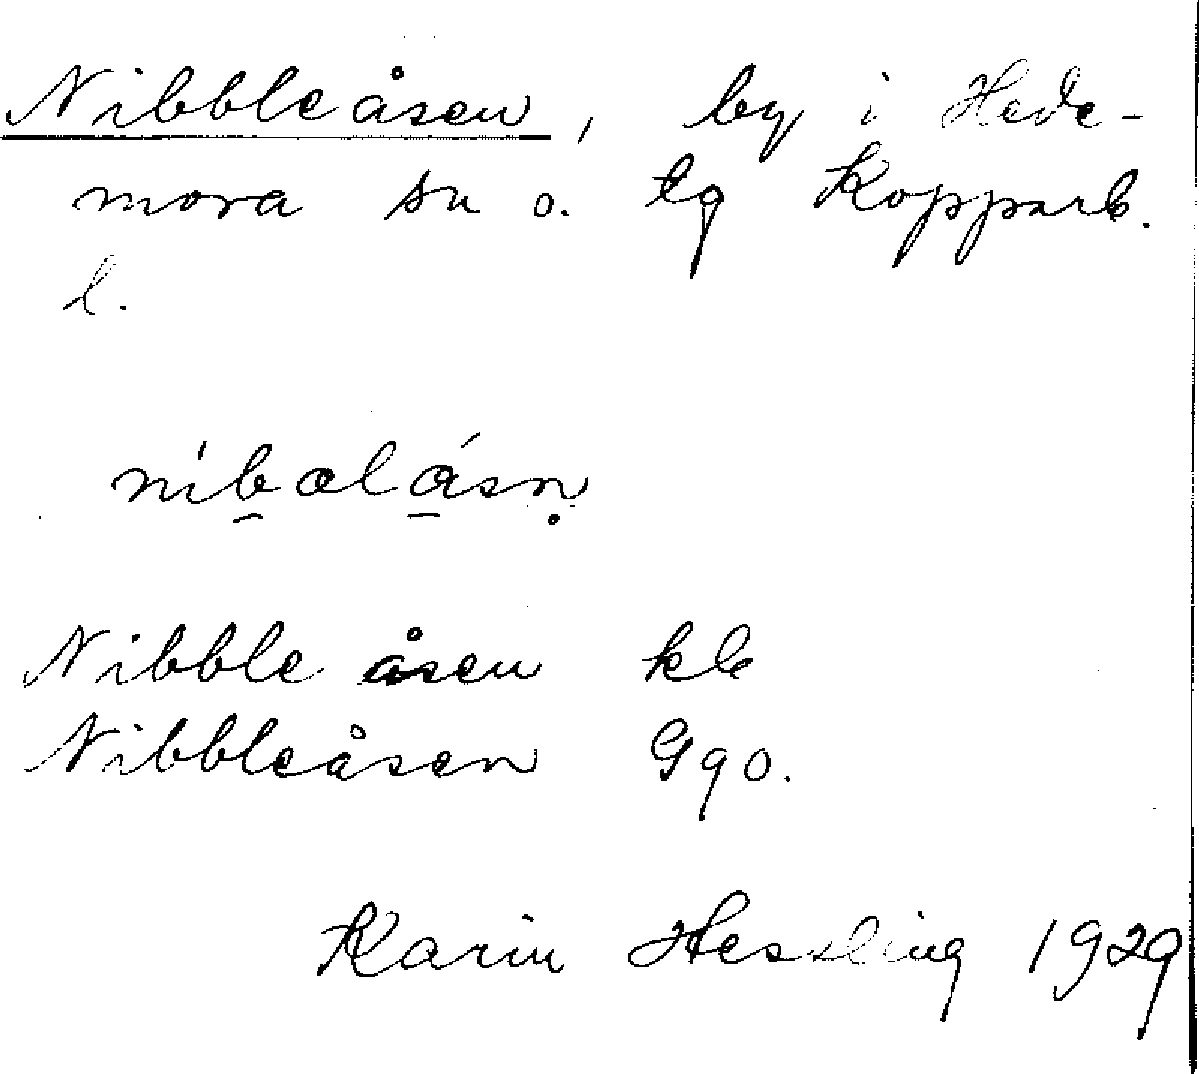 Nibbleåsen, by i Hede-
mora sn o. tg Kopparb.
l.
Nibble åsen kb
Nibbleåsen G90.
Karin Hessling 1929